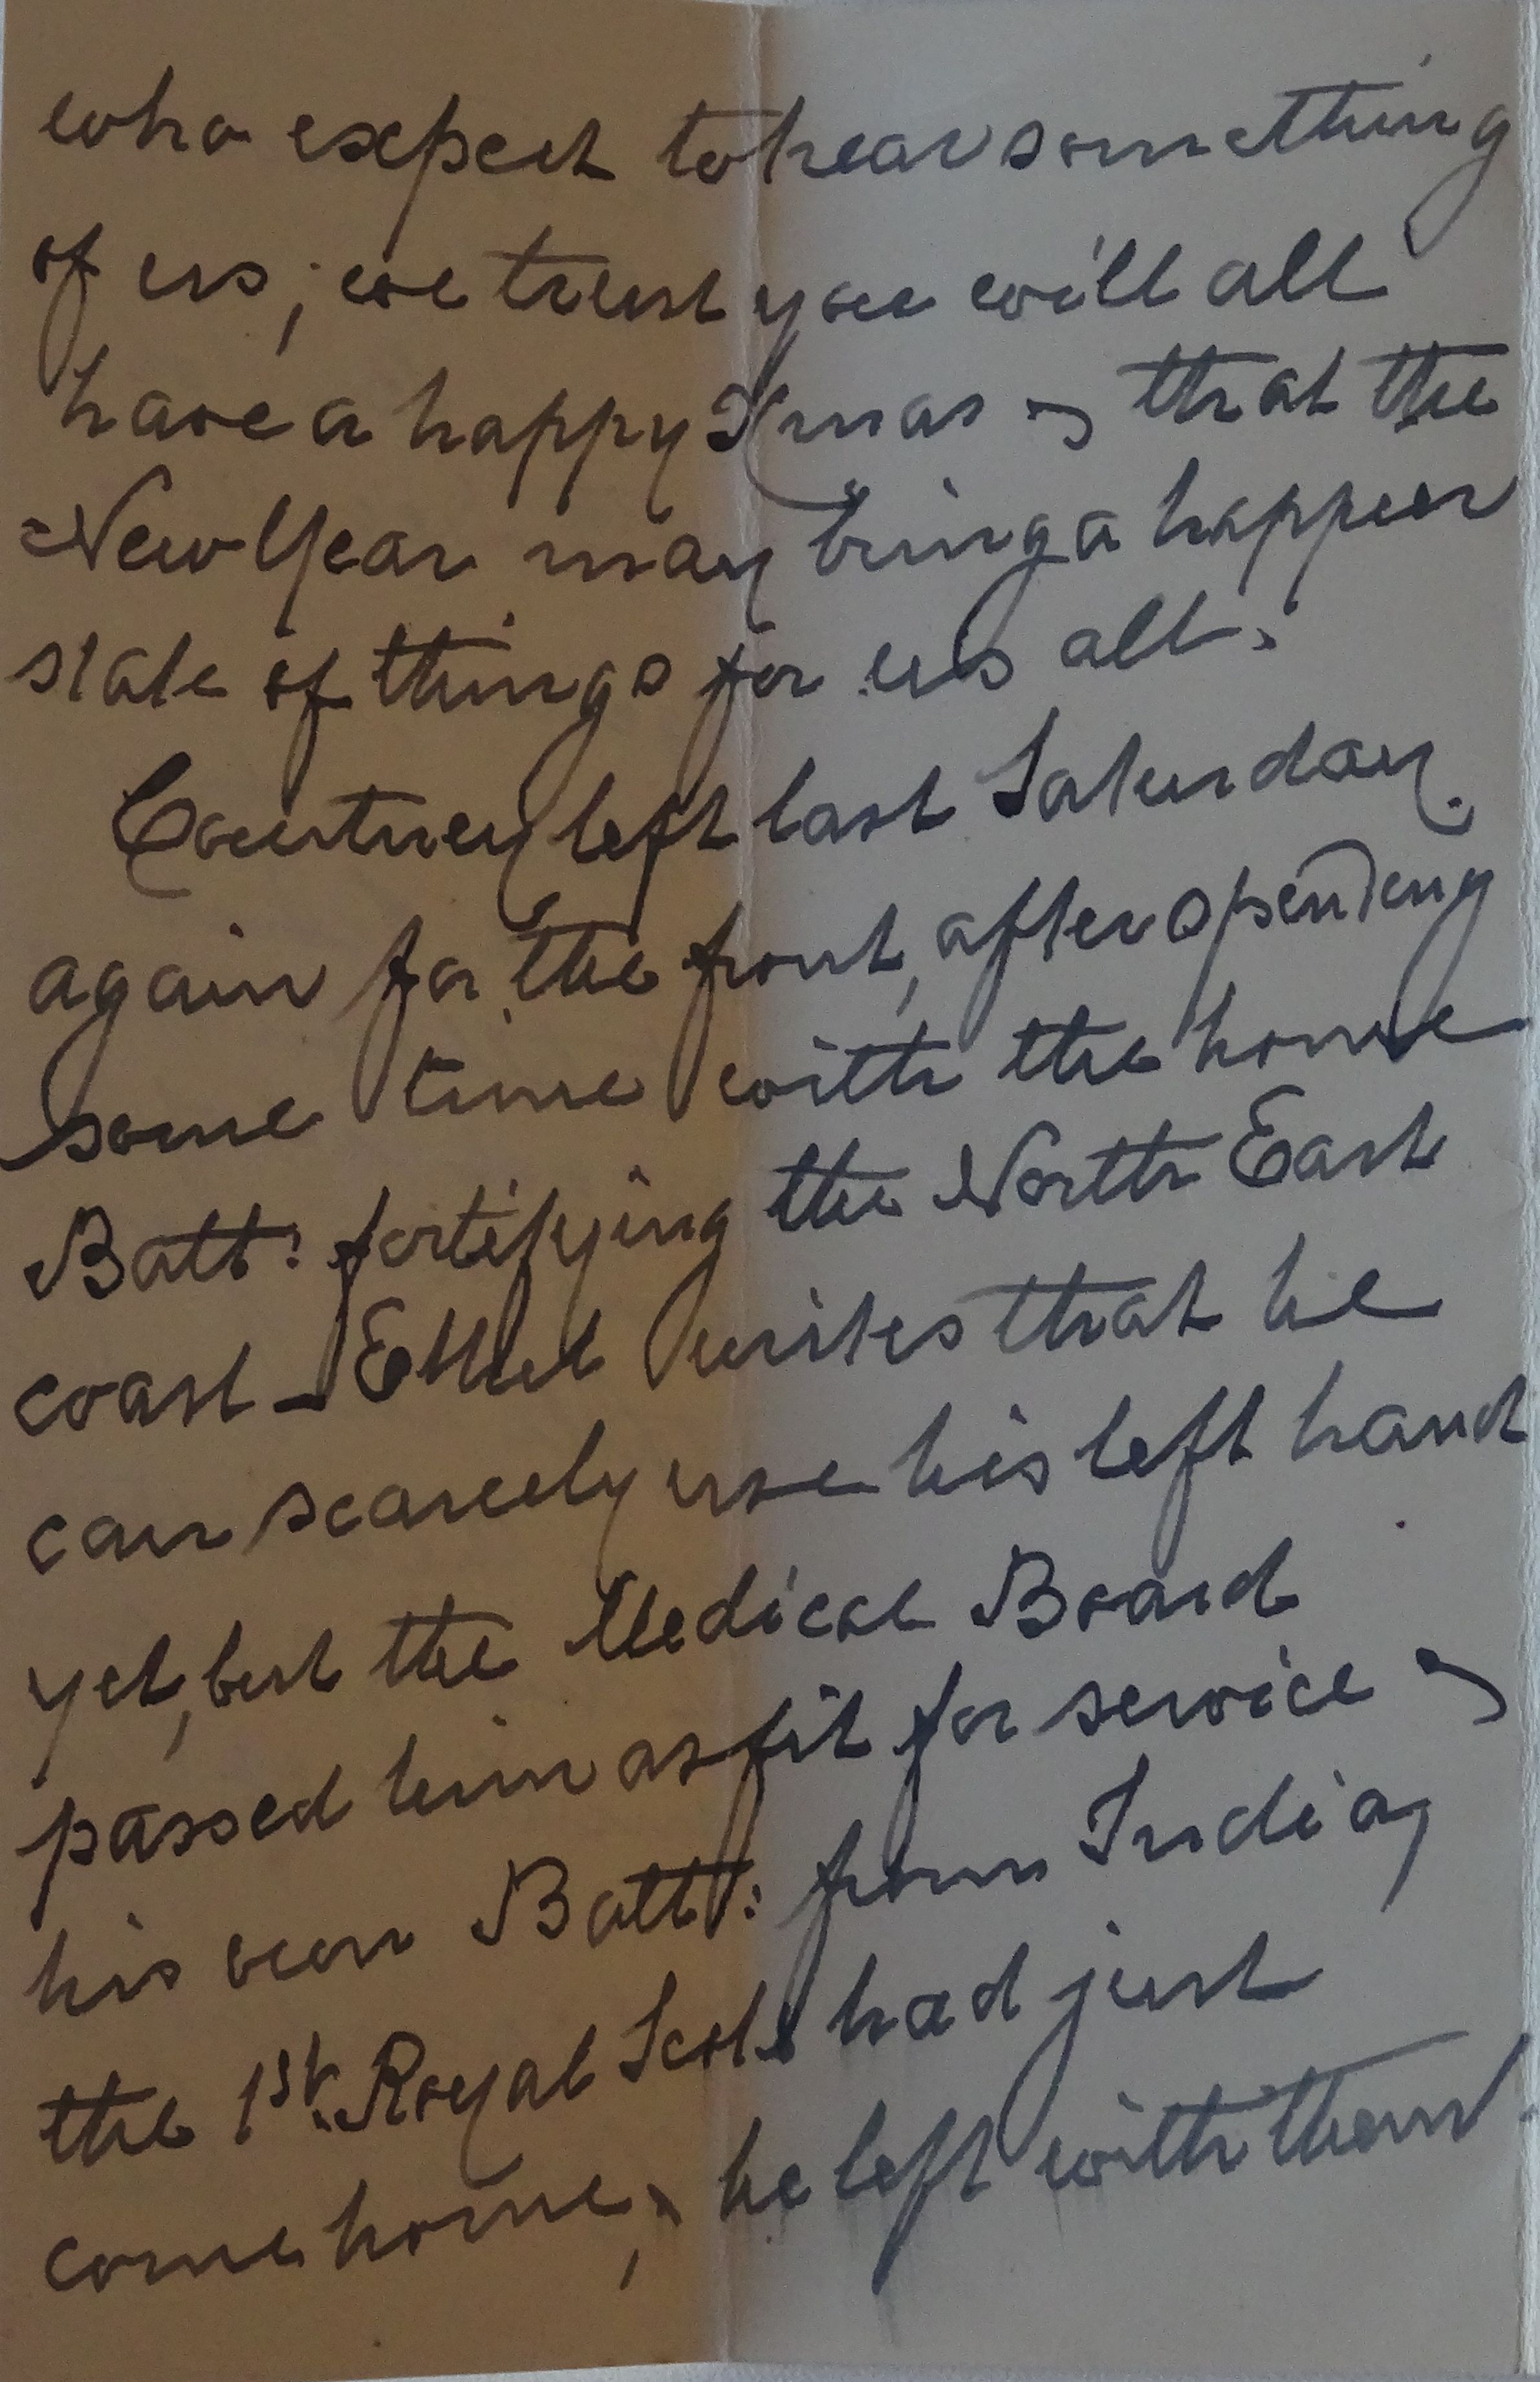 who expect to hear something
of us; we trust you will all
have a happy Xmas & that the
New Year may bring a happier
state of things for us all.
Courtney left last Saturday
again for the front, after spending
some time with the home
Batt: fortifying the North East
coast - Ethel writes that he
can scarcely use his left hand
yet, but the Medical Board
passed him as fit for service &
his own Batt: from India,
the 1st. Royal Scots had just
come home, & he left with them.